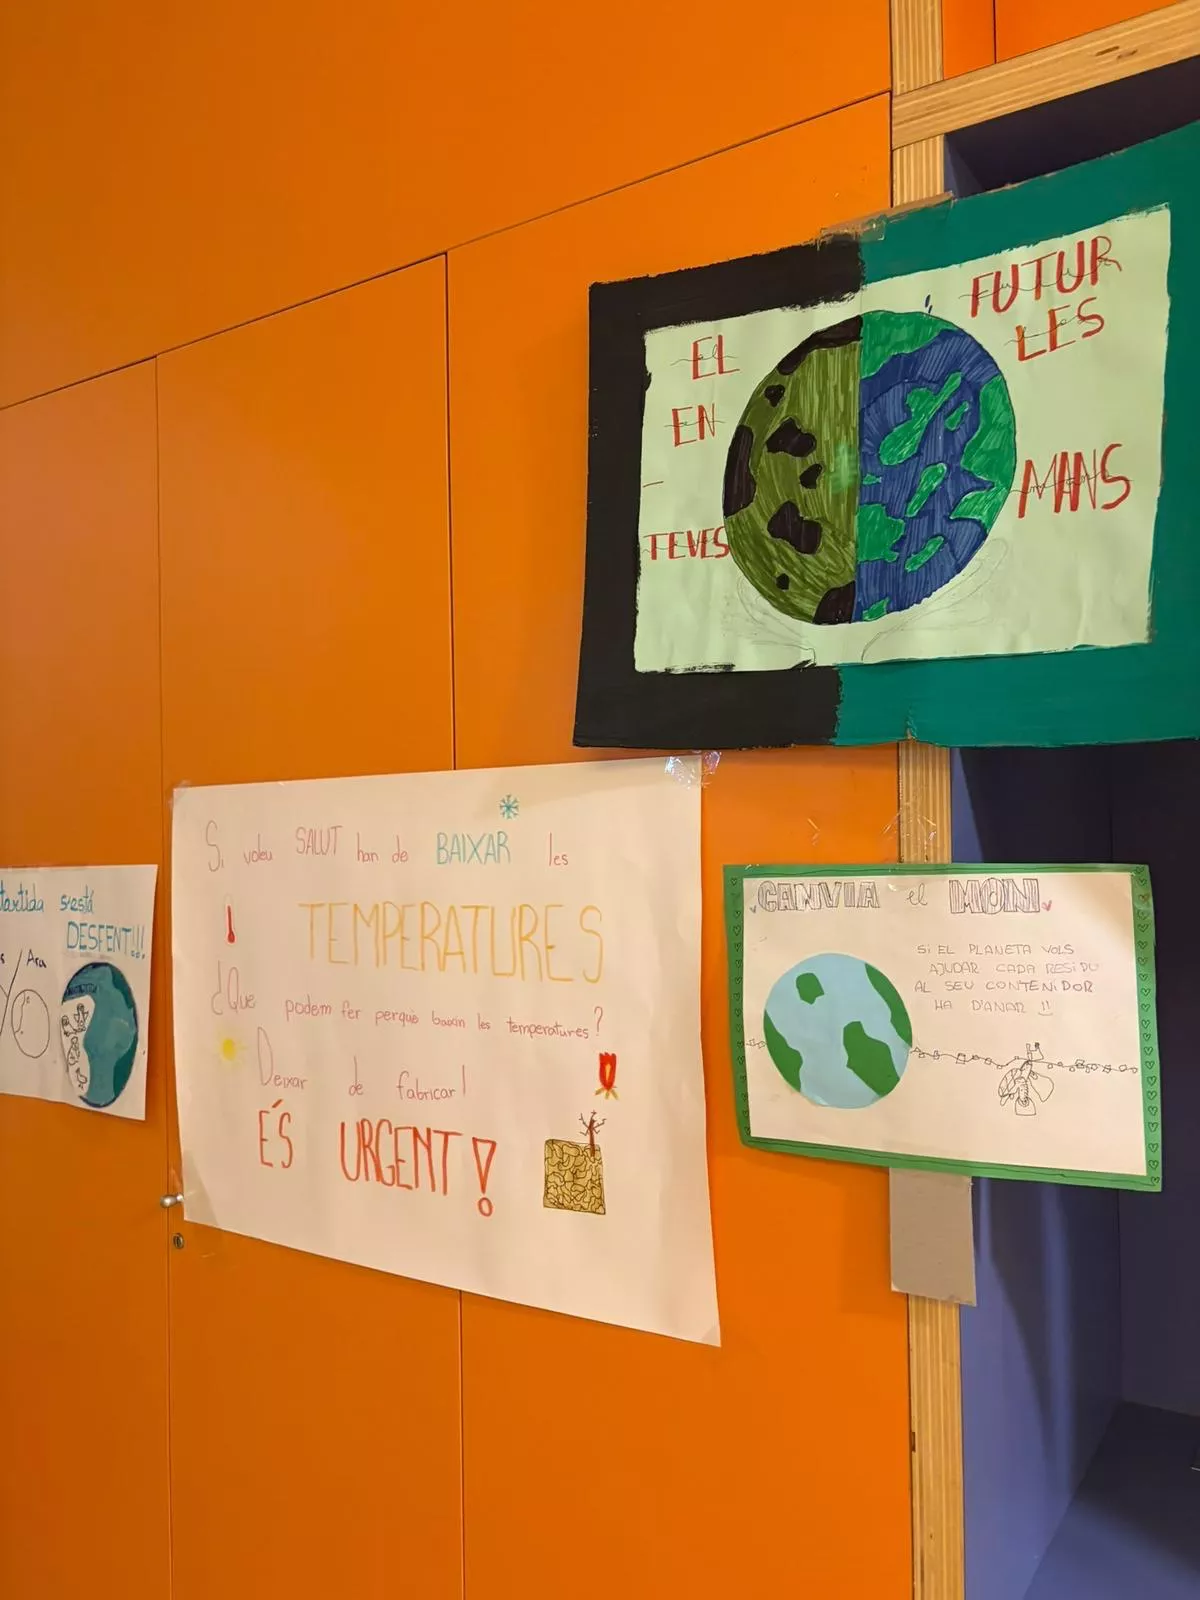 EL FUTUR
EN LES
TEVES MANS
Si voleu SALUT han de BAIXAR les
TEMPERATURES
¿Que podem fer perquè baixin les temperatures?
Deixar de fabricar!
ÉS URGENT!
CANVIA el MÓN
SI EL PLANETA VOLS
AJUDAR CADA RESIDU
AL SEU CONTENIDOR
HA D'ANAR !!
s'está
DESFENT!!!
Ara